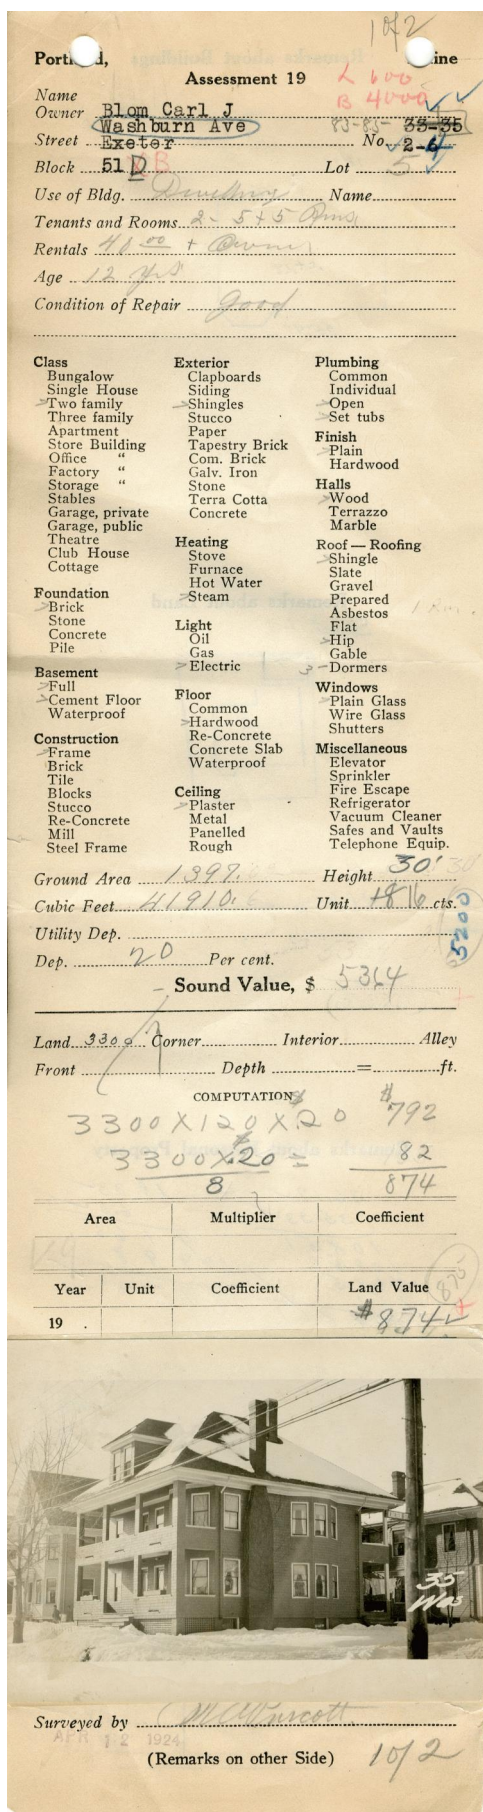 1 of 2
Portl d, ine
Assessment 19
L 600
B 4000
Name
Owner Blom Carl J
Washburn Ave 83-85- 33-35
Street Exeter No. 2-6
Block 51 D B Lot 5
Use of Bldg. Dwelling Name
Tenants and Rooms 2- 5+5 Rms
Rentals 40 00 + Owner
Age 12 yrs
Condition of Repair good
Class
Bungalow
Single House
Two family
Three family
Apartment
Store Building
Office "
Factory "
Storage "
Stables
Garage, private
Garage, public
Theatre
Club House
Cottage
Foundation
Brick
Stone
Concrete
Pile
Basement
Full
Cement Floor
Waterproof
Construction
Frame
Brick
Tile
Blocks
Stucco
Re-Concrete
Mill
Steel Frame
Exterior
Clapboards
Siding
Shingles
Stucco
Paper
Tapestry Brick
Com. Brick
Galv. Iron
Stone
Terra Cotta
Concrete
Heating
Stove
Furnace
Hot Water
Steam
Light
Oil
Gas
Electric
Floor
Common
Hardwood
Re-Concrete
Concrete Slab
Waterproof
Ceiling
Plaster
Metal
Panelled
Rough
Plumbing
Common
Individual
Open
Set tubs
Finish
Plain
Hardwood
Halls
Wood
Terrazzo
Marble
Roof — Roofing
Shingle
Slate
Gravel
Prepared
Asbestos
Flat
Hip
Gable
3 - Dormers
Windows
Plain Glass
Wire Glass
Shutters
Miscellaneous
Elevator
Sprinkler
Fire Escape
Refrigerator
Vacuum Cleaner
Safes and Vaults
Telephone Equip.
Ground Area 1397 Height 30'
Cubic Feet 41910 Unit 16 cts.
5200
Utility Dep.
Dep. 20 Per cent.
Sound Value, $ 5364
Land 3300 Corner Interior Alley
Front Depth = ft.
COMPUTATION
3300 X 120 X 20 $792
3300 X .20 = 82
8 874
Area Multiplier Coefficient
875
Year Unit Coefficient Land Value
19 . $874
35
Was
Surveyed by
APR 12 1924
(Remarks on other Side) 1 of 2